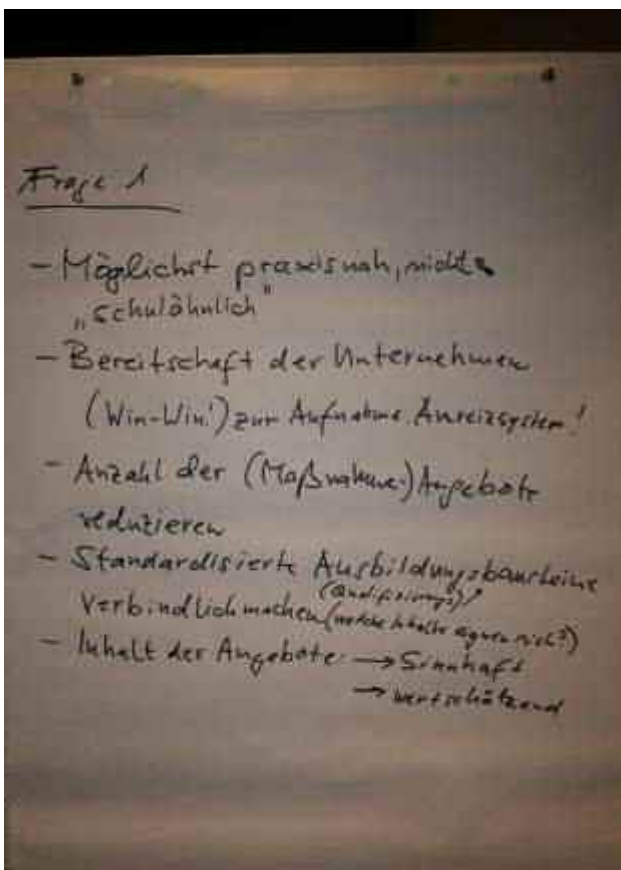 Frage 1
- Möglichst praxisnah, nicht
„schulähnlich"
- Bereitschaft der Unternehmen
(Win-Win!) zur Aufnahme. Anreizsystem!
- Anzahl der (Maßnahme-)Angebote
reduzieren
- Standardisierte Ausbildungsbausteine
(Qualifizierungs)
verbindlich machen (welche Inhalte eignen sich?)
- Inhalt der Angebote → Sinnhaft
→ wertschätzend